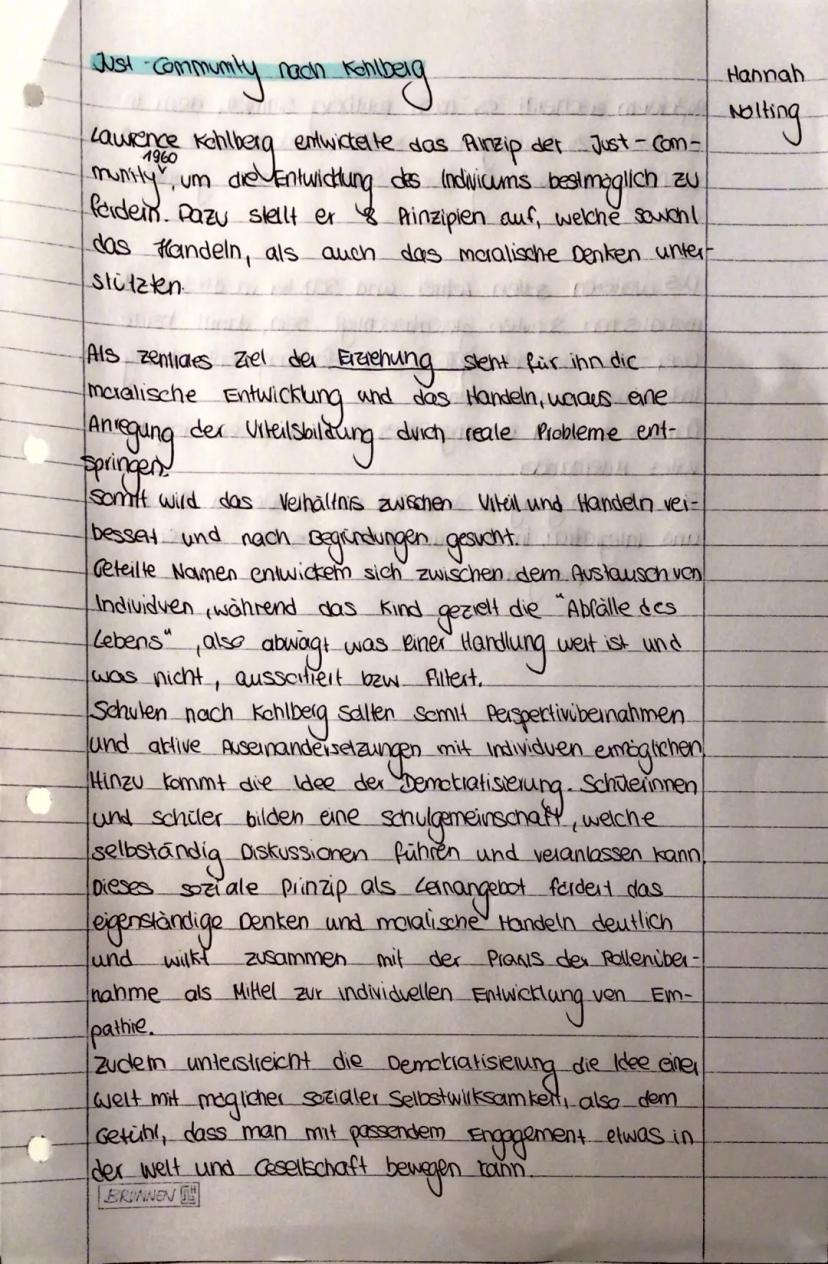 Just-Community nach Kohlberg
Hannah
Nolting
Lawrence Kohlberg entwickelte das Prinzip der Just-Com-
1960
munity, um die Entwicklung des Indivicums bestmöglich zu
fördern. Dazu stellt er Prinzipien auf, welche sowohl
das Handeln, als auch das moralische Denken unter-
stützten.
Als zentrales Ziel der Erziehung steht für ihn die
moralische Entwicklung und das Handeln, woraus eine
Anregung der Urteilsbildung durch reale Probleme ent-
springen.
Somit wird das Verhältnis zwischen Urteil und Handeln ver-
bessert und nach Begründungen gesucht.
Geteilte Normen entwickeln sich zwischen dem Austausch von
Individuen, während das Kind gezielt die "Abfälle des
Lebens", also abwägt was einer Handlung wert ist und
was nicht, aussortiert bzw. filtert.
Schulen nach Kohlberg sollen somit Perspektivübernahmen
und aktive Auseinandersetzungen mit Individuen ermöglichen.
Hinzu kommt die Idee der Demokratisierung. Schülerinnen
und Schüler bilden eine Schulgemeinschaft, welche
selbständig Diskussionen führen und veranlassen kann.
Dieses soziale Prinzip als Lernangebot fördert das
eigenständige Denken und moralische Handeln deutlich
und wirkt zusammen mit der Praxis der Rollenüber-
nahme als Mittel zur individuellen Entwicklung von Em-
pathie.
Zudem unterstreicht die Demokratisierung die Idee einer
Welt mit möglicher sozialer Selbstwirksamkeit, also dem
Gefühl, dass man mit passendem Engagement etwas in
der Welt und Gesellschaft bewegen kann.
BRUNNEN